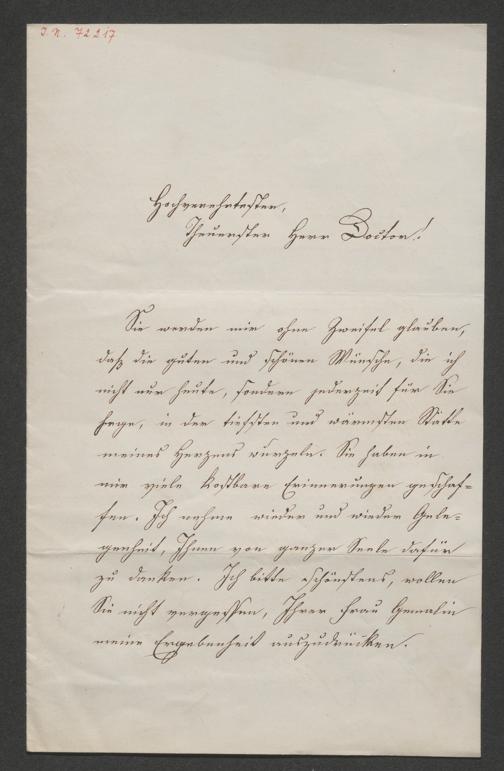 I. N. 72217
Hochverehrtester,
Theuerster Herr Doctor!
Sie werden mir ohne Zweifel glauben,
daß die guten und schönen Wünsche, die ich
nicht nur heute, sondern jederzeit für Sie
hege, in der tiefsten und wärmsten Stätte
meines Herzens wurzeln. Sie haben in
mir viele kostbare Erinnerungen geschaf=
fen. Ich nehme wieder und wieder Gele=
genheit, Ihnen von ganzer Seele dafür
zu danken. Ich bitte schönstens, wollen
Sie nicht vergessen, Ihrer Frau Gemalin
meine Ergebenheit auszudrücken.